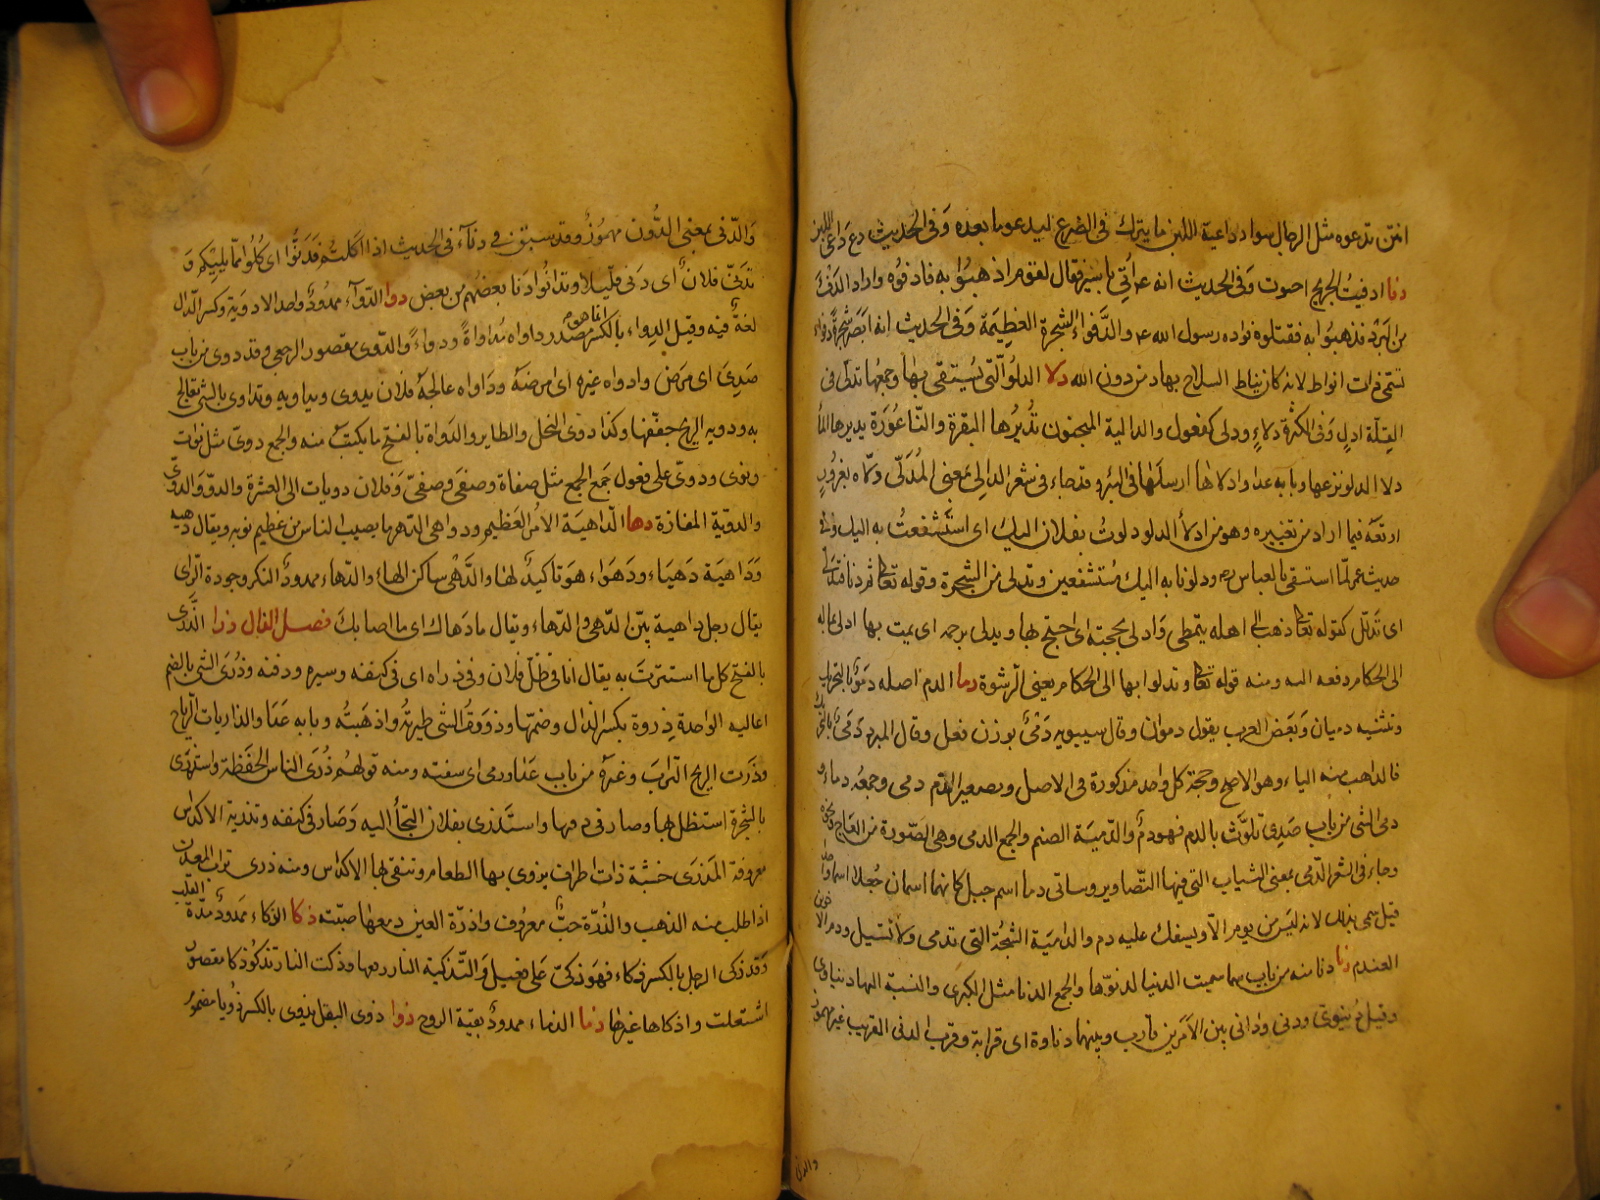 امّن تدعوه مثل الرجال سوا وداعية اللبن ما يترك فى الضرع ليدعو ما بعده وَفى الحديث دع دَاعى اللبن
دفا ادفيتُ الجريح اجهزت وَفى الحديث انه ع م اُتِى باسير فقال لقوم اذهبُوا به فادفوُه واراد الدّفَ
من البَرْد فذهبُوا به فقتلوه فوداه رسول الله ع م والدَّفواء الشجرة العظِيمَة وَفى الحديث انه ابصَر شجرةً دفواء
تسمّى ذات انواط لانه كان يناط السلاح بها من دون الله دلا الدلوُ الّتى يُستقى بها وجمعُها فى
القِلّة ادلٍ وَفى الكثرة دلاءٍ ودلى كفعول والدالية المنجنون تُديرُها البقرة والنّاعُوْرَة يديرها الماء
دلا الدلو نزعها وبابه عدا وادلاها ارسلَها فى البئر وقد جاء فى شعر الدالى بمعنى المُدلّى ودلّاه بغرُورٍ
اوقعَه فيما اراد من تغييره وهو من ادلأ الدلو دلوتُ بفلان اليك اى استَشفعتُ به اليك وفى
حديث عمر لمّا استسقى بالعباس رع ودلونا به اليك مُستشفعين وتدلى من الشجرة وقوله تعالى ثم دنا فتدلّى
اى تدَلّل كقوله تعالى ذهب الى اهله يتمطى وَادلى بحجته اى احتج بها ويدلى برحمه اى يمت بها ادلى بماله
الى الحكام دفعه اليه ومنه قوله تعالى وتدلوا بها الى الحكام يعنى الرشوة دما الدم اصله دَمَوٌ بالتحريك
وتثنيه دميان وَبَعَض العرب يقول دموان وقال سيبويه دَمْىٌ بوزن فعل وقال المبرد دَمَىٌ بالتحريك
فالذاهب منه الياء وهو الاصح وحجة كل واحد مذكورة فى الاصل وتصغير الدّم دمى وجمعُه دماء و
دمى الشى من بابِ صَدِىَ تلوّث بالدم فهو دمٌ والدّميَة الصنم والجمع الدمى وهى الصّورة من العَاج ونحوه
وجاء فى الشعر الدّمى بمعنى الثياب التى فيها التّصاوير وساتى دما اسم جبل كانهما اسمان جُعلا اسما واحدا
قيل سمى بذلك لانه ليَس من يوم الّا ويسفك عليه دم والدَاميَة الشجّة التى تدمى ولا تسيل ودم الاخوين
العندم دنا دنا منه من باب سما سميت الدنيا لدنوّها والجمع الدنا مثل الكبرَى والنسبة اليها دنياوى
وقيل دُنيوىّ ودنى ودانى بين الاَمرين قارب وبينهما دناوة اى قرابة وقرب الدنى القريب غير مهموز
والدنى
وَالدّنى بمعنى الدُّون مهمُوزٌ وقد سبقَ فى دناَءَ فى الحديث اذا اَكلتُم فَدَنُّوا اى كُلُوا ممّا يليْكم وَ
تدنّى فلانٌ اى دنى قليلا وتدانُوا دَنا بعضهُم من بعض دوا الدّوآء ممدُودٌ واحد الادوية وكسر الدّال
لغةٌ فيه وقيل الدِواء بالكسر انما هو مصدر داواه مُداواةً ودواءً والدّوى مقصور المرض وقد دوى من باب
صَدِىَ اى مَرِضَ وادواه غيره اى امرضهَ ودَاواه عالجهُ فلان يدوى ويداويه وتداوى بالشئ تعالج
به ودوىّ الريح حفيفها وكذا دوى النخل والطاير والدَواة بالفتح ما يكتبُ منه والجمع دوىّ مثل نواة
ونوى ودوىّ على فعول جمَع الجمع مثل صفاة وصفَى وصفىّ وَفلان دويات الى العشرة والدوّ وَالدوىّ
والدوّية المفازة دها الدّاهيَة الامُر العَظيم ودواهى الدّهر ما يصيب الناس من عَظيم نوبه ويقال دَهيه
وَدَاهيَة دَهيَاء ودَهَوَاء هُوَ تاكيدٌ لها والدَّهْى سَاكن الهاء والدهاء ممدودٌ النكر وجودة الرّاى
يقال رجل داهية بيّن الدّهى والدّهاء ويقال ما دَهاك اى ما اصابكَ فصل الذال ذرا الذَّرى
بالفتح كل ما استترتَ به يقال انا فى ظلّ فلان وفى ذراه اى فى كنفه وسيره ودفئه وذُرَى الشئ بالضم
اعاليه الواحدة ذروة بكسر الذال وضمّها وذروُتُ الشئ طيرتُه واذهَبتُه وبابه عَدَا والذاريات الرياح
وذرَت الريح التراب وغيرَه من باب عَدَا ورمى اى سفته ومنه قولهُم ذُرَى الناس الحنطة واستذرى
بالشجرة استظل بها وصار فى دفئها واستذرى بفلان التجأ اليه وَصَار فى كنفه وتذرية الاكداس
معروفة المَذرَى خشبة ذات اطراف يذرى بها الطعام وتنقى بها الاكداس ومنه ذرى تراب المعدن
اذا طلب منه الذهب والذُرّة حبٌّ معرُوف واذرّة العين دمعها صبّته ذكا الذكاء ممدودٌ حدّة القلب
وَقد ذكى الرجل بالكسر ذكاء فهوَ ذكىّ عَلى فعيل وَالتّذكية النار رفعها وذكت النار تذكُو ذكا مقصورٌ
اشتعلت واذكاها غيرُها ذما الذماء ممدودٌ بقيّة الروح ذوا ذوى البقل يذوى بالكسر ذُويا مضمُومٌ